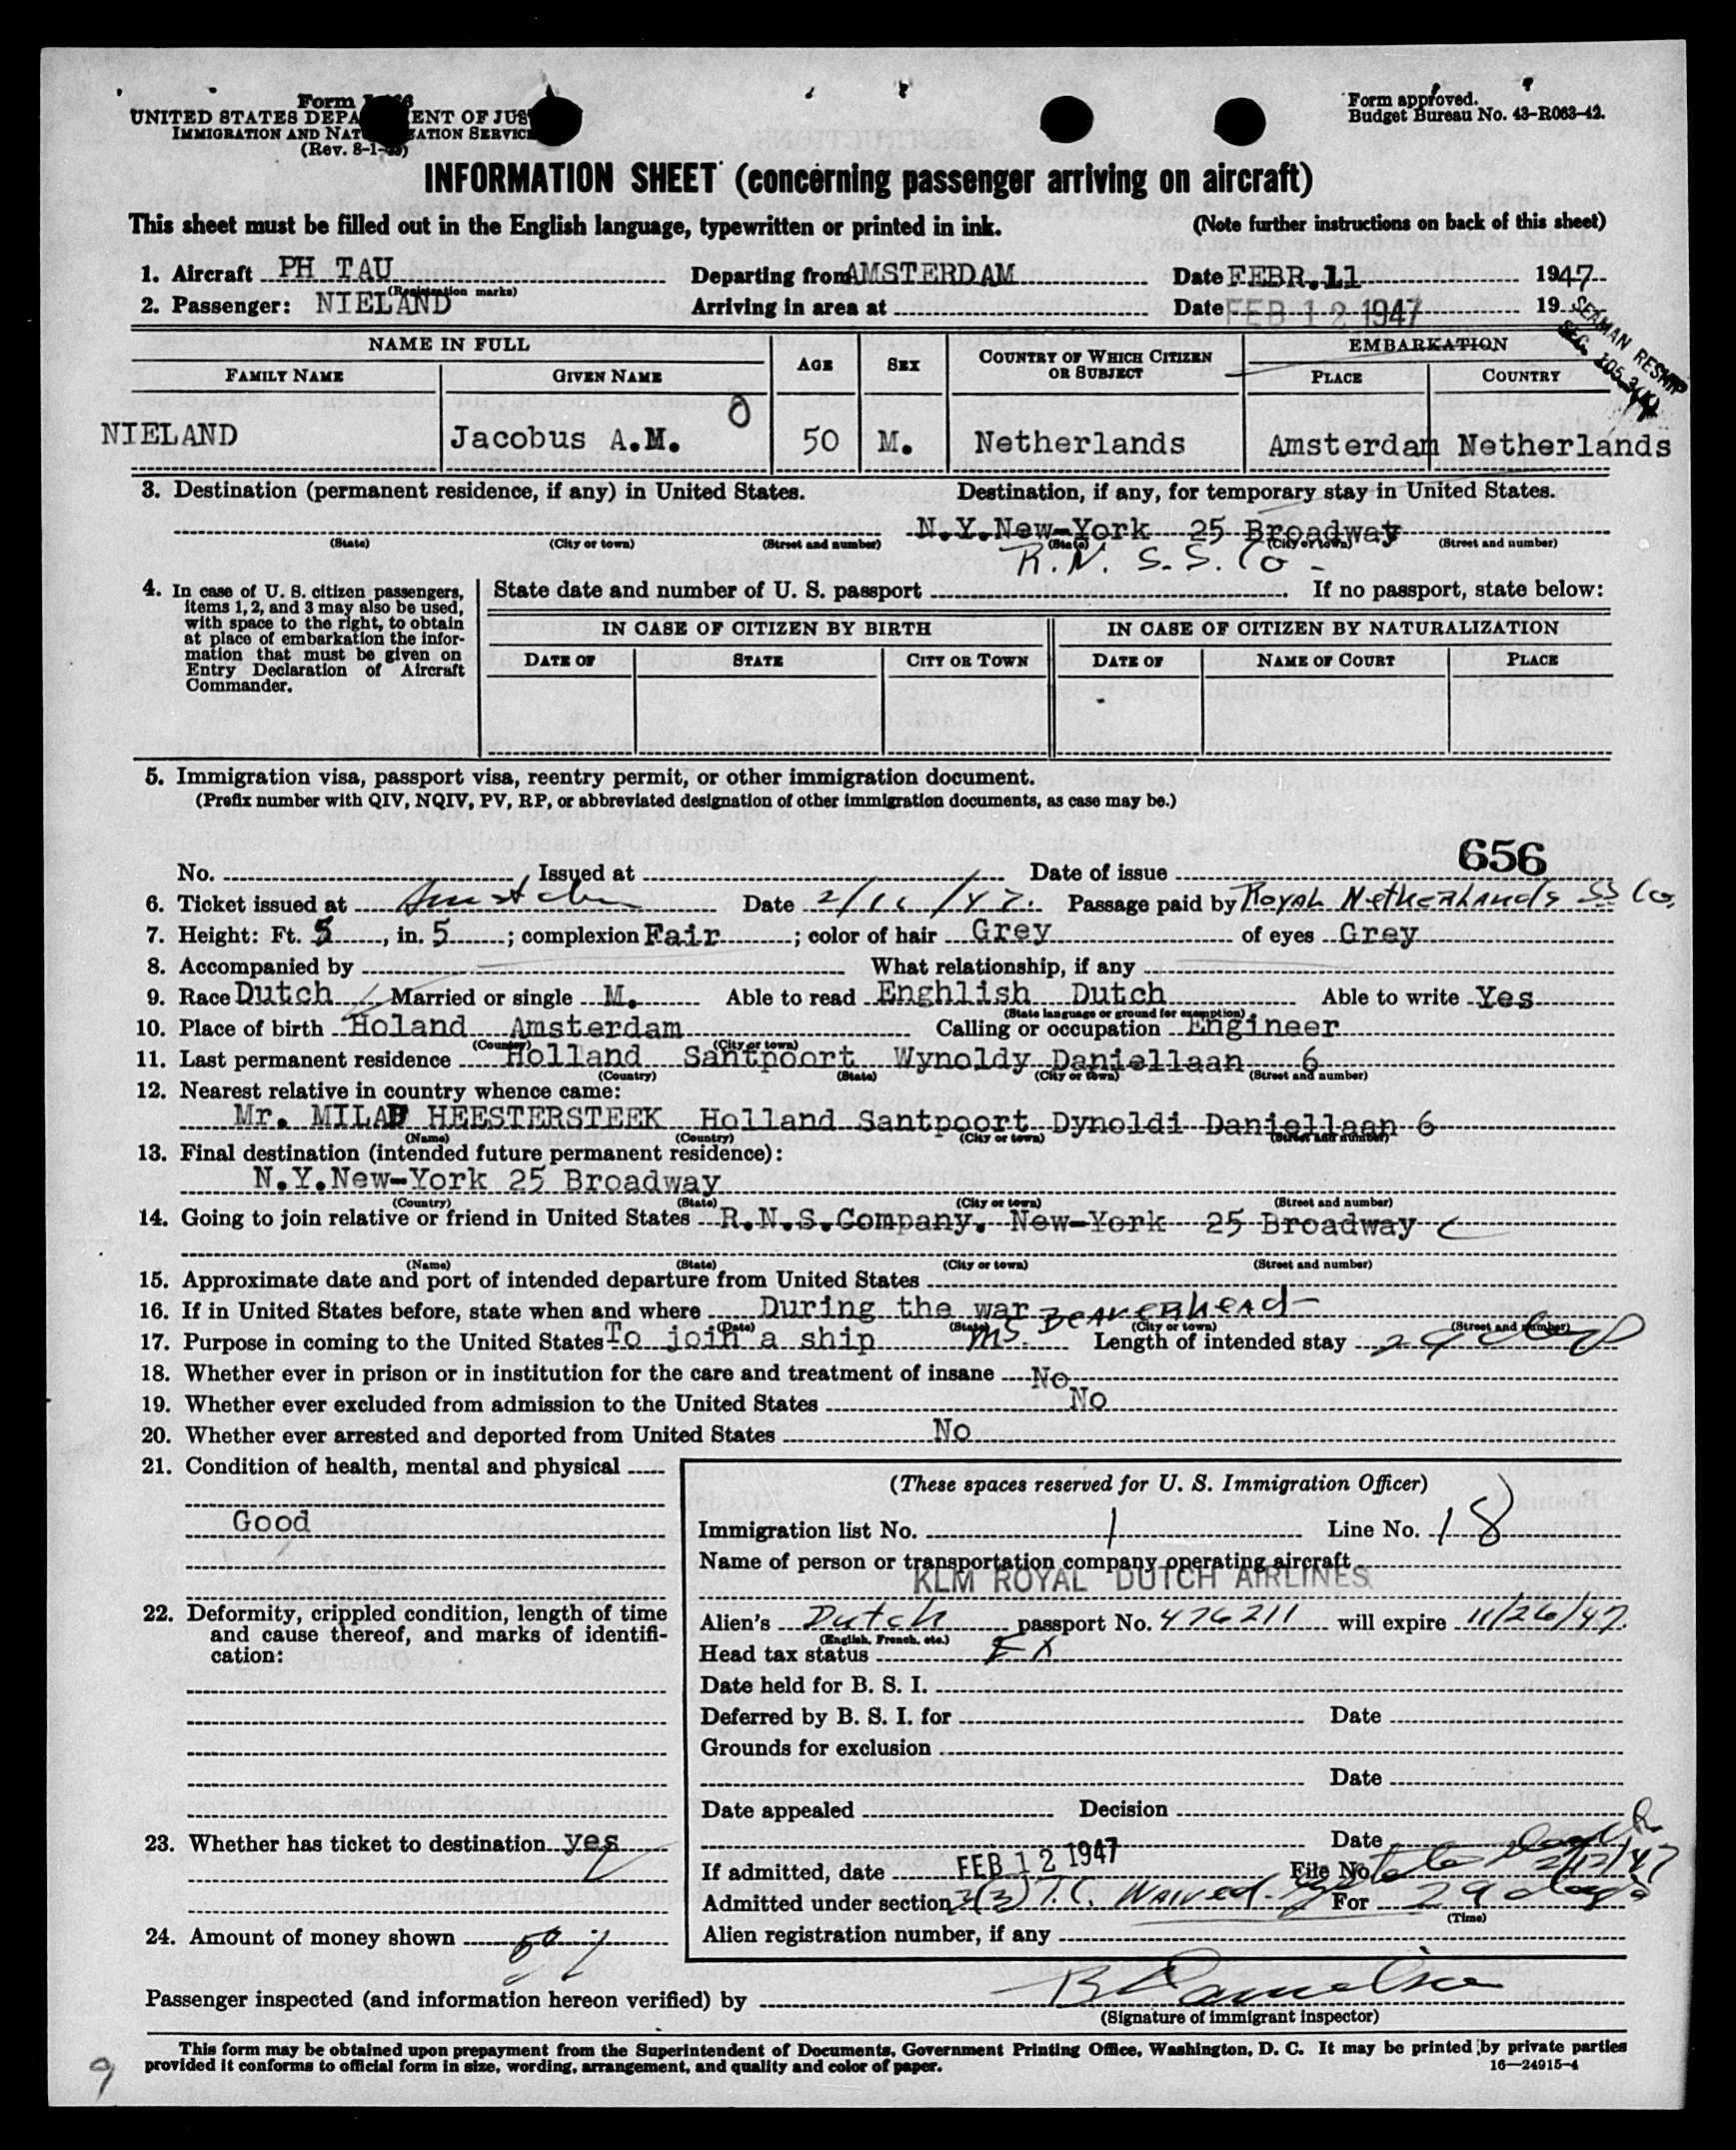 Form
UNITED STATES DEPA ENT OF JUS
IMMIGRATION AND NAT ATION SERVICE
(Rev. 8-1- )
Form approved.
Budget Bureau No. 43-R063-42.
INFORMATION SHEET (concerning passenger arriving on aircraft)
This sheet must be filled out in the English language, typewritten or printed in ink. (Note further instructions on back of this sheet)
1. Aircraft PH TAU Departing from AMSTERDAM Date FEBR.11 1947
(Registration marks)
2. Passenger: NIELAND Arriving in area at Date FEB 12 1947 19
SEAMAN RESHIP
SEC. 105.3(K)
NAME IN FULL AGE SEX COUNTRY OF WHICH CITIZEN OR SUBJECT EMBARKATION
FAMILY NAME GIVEN NAME PLACE COUNTRY
NIELAND Jacobus A.M. 50 M. Netherlands Amsterdam Netherlands
3. Destination (permanent residence, if any) in United States. Destination, if any, for temporary stay in United States.
N.Y.New-York 25 Broadway
(State) (City or town) (Street and number) (State) (City or town) (Street and number)
R.N. S.S. Co -
4. In case of U. S. citizen passengers, items 1, 2, and 3 may also be used, with space to the right, to obtain at place of embarkation the information that must be given on Entry Declaration of Aircraft Commander.
State date and number of U. S. passport If no passport, state below:
IN CASE OF CITIZEN BY BIRTH IN CASE OF CITIZEN BY NATURALIZATION
DATE OF STATE CITY OR TOWN DATE OF NAME OF COURT PLACE
5. Immigration visa, passport visa, reentry permit, or other immigration document.
(Prefix number with QIV, NQIV, PV, RP, or abbreviated designation of other immigration documents, as case may be.)
656
No. Issued at Date of issue
6. Ticket issued at Date Passage paid by Royal Netherlands SS Co.
7. Height: Ft. 5, in. 5; complexion Fair; color of hair Grey of eyes Grey
8. Accompanied by What relationship, if any
9. Race Dutch Married or single M. Able to read Enghlish Dutch Able to write Yes
(State language or ground for exemption)
10. Place of birth Holand Amsterdam Calling or occupation Engineer
(Country) (City or town)
11. Last permanent residence Holland Santpoort Wynoldy Daniellaan 6
(Country) (State) (City or town) (Street and number)
12. Nearest relative in country whence came:
Mr. MILAD HEESTERSTEEK Holland Santpoort Dynoldi Daniellaan 6
(Name) (Country) (City or town) (Street and number)
13. Final destination (intended future permanent residence):
N.Y.New-York 25 Broadway
(Country) (State) (City or town) (Street and number)
14. Going to join relative or friend in United States R.N.S.Company. New-York 25 Broadway
(Name) (State) (City or town) (Street and number)
15. Approximate date and port of intended departure from United States
16. If in United States before, state when and where During the war
(Date) (State) (City or town) (Street and number)
17. Purpose in coming to the United States To join a ship MS Beaverhead Length of intended stay 29 days
18. Whether ever in prison or in institution for the care and treatment of insane No
19. Whether ever excluded from admission to the United States No
20. Whether ever arrested and deported from United States No
21. Condition of health, mental and physical
Good
22. Deformity, crippled condition, length of time and cause thereof, and marks of identification:
23. Whether has ticket to destination yes
24. Amount of money shown
(These spaces reserved for U. S. Immigration Officer)
Immigration list No. 1 Line No. 18
Name of person or transportation company operating aircraft
KLM ROYAL DUTCH AIRLINES
Alien's Dutch passport No. 476211 will expire 11/26/47.
(English, French, etc.)
Head tax status EX
Date held for B. S. I.
Deferred by B. S. I. for Date
Grounds for exclusion
Date
Date appealed Decision
Date
If admitted, date FEB 12 1947 File No. 2/12/47
Admitted under section 3(3) T.C. Waived For 29 days
(Time)
Alien registration number, if any
Passenger inspected (and information hereon verified) by
(Signature of immigrant inspector)
This form may be obtained upon prepayment from the Superintendent of Documents, Government Printing Office, Washington, D. C. It may be printed by private parties
provided it conforms to official form in size, wording, arrangement, and quality and color of paper. 16—24915-4
9